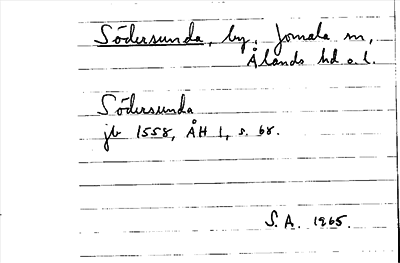 Södersunda, by, Jomala sn,
Ålands hd o. l.
Södersunda
jb 1558, ÅH 1, s. 68.
S. A. 1965.